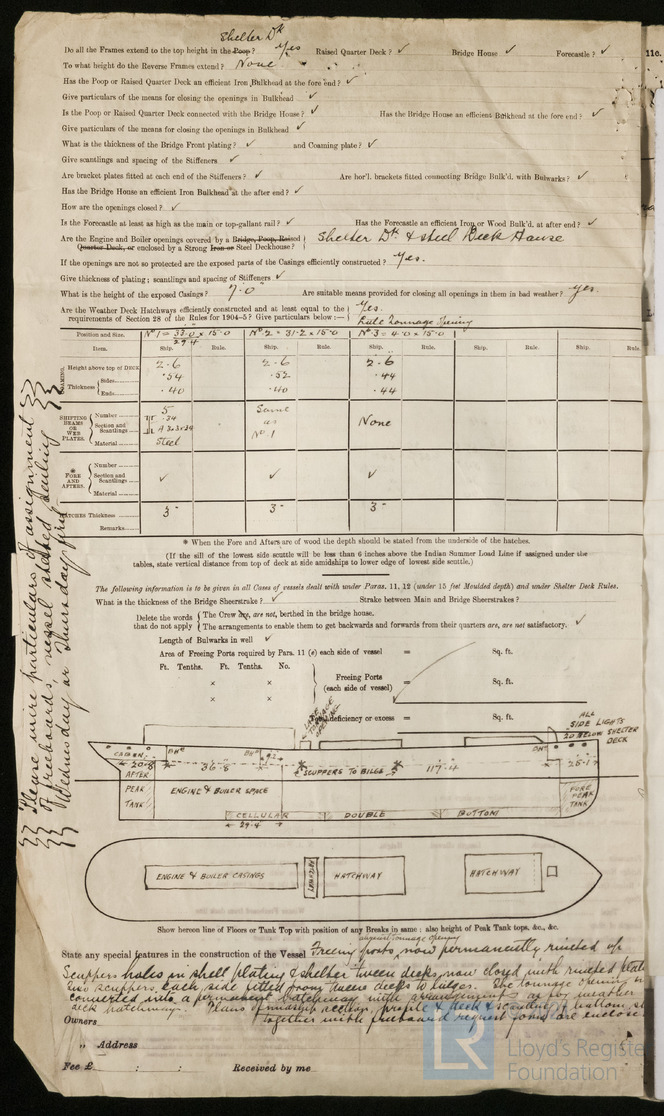 Shelter Dk
Do all the Frames extend to the top height in the Poop? Yes Raised Quarter Deck? ✓ Bridge House ✓ Forecastle? ✓
To what height do the Reverse Frames extend? None
Has the Poop or Raised Quarter Deck an efficient Iron Bulkhead at the fore end? ✓
Give particulars of the means for closing the openings in Bulkhead ✓
Is the Poop or Raised Quarter Deck connected with the Bridge House? ✓ Has the Bridge House an efficient Bulkhead at the fore end? ✓
Give particulars of the means for closing the openings in Bulkhead ✓
What is the thickness of the Bridge Front plating? ✓ and Coaming plate? ✓
Give scantlings and spacing of the Stiffeners ✓
Are bracket plates fitted at each end of the Stiffeners? ✓ Are hor'l. brackets fitted connecting Bridge Bulk'd. with Bulwarks? ✓
Has the Bridge House an efficient Iron Bulkhead at the after end? ✓
How are the openings closed? ✓
Is the Forecastle at least as high as the main or top-gallant rail? ✓ Has the Forecastle an efficient Iron or Wood Bulk'd. at after end? ✓
Are the Engine and Boiler openings covered by a Bridge, Poop, Raised Quarter Deck, or enclosed by a Strong Iron or Steel Deckhouse? Shelter Dk & steel Deck House
If the openings are not so protected are the exposed parts of the Casings efficiently constructed? Yes.
Give thickness of plating; scantlings and spacing of Stiffeners ✓
What is the height of the exposed Casings? 7'.0" Are suitable means provided for closing all openings in them in bad weather? Yes.
Are the Weather Deck Hatchways efficiently constructed and at least equal to the requirements of Section 28 of the Rules for 1904-5? Give particulars below:— Yes.
Tonnage Opening
Position and Size. No 1 = 33.0 x 15.0 No 2 = 31.2 x 15.0 No 3 = 4.0 x 15.0
29 4
Item. Ship. Rule. Ship. Rule. Ship. Rule. Ship. Rule. Ship. Rule.
COAMING. Height above top of DECK 2-6 2-6 2-6
Thickness Sides .54 .52 .44
Ends .40 .40 .44
SHIFTING BEAMS OR WEB PLATES. Number 5 Same as No 1 None
Section and Scantlings .34
Material Steel
* FORE AND AFTERS. Number
Section and Scantlings ✓ ✓ ✓
Material
HATCHES Thickness 3" 3" 3"
Remarks
* When the Fore and Afters are of wood the depth should be stated from the underside of the hatches.
(If the sill of the lowest side scuttle will be less than 6 inches above the Indian Summer Load Line if assigned under the
tables, state vertical distance from top of deck at side amidships to lower edge of lowest side scuttle.)
The following information is to be given in all Cases of vessels dealt with under Paras. 11, 12 (under 15 feet Moulded depth) and under Shelter Deck Rules.
What is the thickness of the Bridge Sheerstrake? ✓ Strake between Main and Bridge Sheerstrakes?
Delete the words that do not apply The Crew are, are not, berthed in the bridge house.
The arrangements to enable them to get backwards and forwards from their quarters are, are not satisfactory. ✓
Length of Bulwarks in well ✓
Area of Freeing Ports required by Para. 11 (e) each side of vessel = Sq. ft.
Ft. Tenths. Ft. Tenths. No.
× × Freeing Ports (each side of vessel) = Sq. ft.
× ×
Total deficiency or excess = Sq. ft.
TONNAGE OPENING
ALL SIDE LIGHTS 20 BELOW SHELTER DECK
CABIN BHd BHd BHd
20-8 36-8 SCUPPERS TO BILGE 117-4 25-1
AFTER PEAK TANK ENGINE & BOILER SPACE FORE PEAK TANK
CELLULAR DOUBLE BOTTOM
29-4
ENGINE & BOILER CASINGS HATCHWAY HATCHWAY HATCHWAY
Show hereon line of Floors or Tank Top with position of any Breaks in same: also height of Peak Tank tops, &c., &c.
tonnage opening
State any special features in the construction of the Vessel Freeing ports now permanently riveted up
Scuppers holes in shell plating & shelter tween decks now closed with riveted plates
Two scuppers each side fitted from tween decks to bilges. The tonnage opening is
converted into a permanent hatchway with arrangements as for weather
deck hatchways. Plans of midship section, profile & deck &
together with freeboard request form are enclosed
Owners
„ Address
Fee £ : : Received by me
Please wire particulars of assignment
of freeboards, vessel stated sailing
Wednesday or Thursday first
11c.
LR Lloyd's Register
Foundation